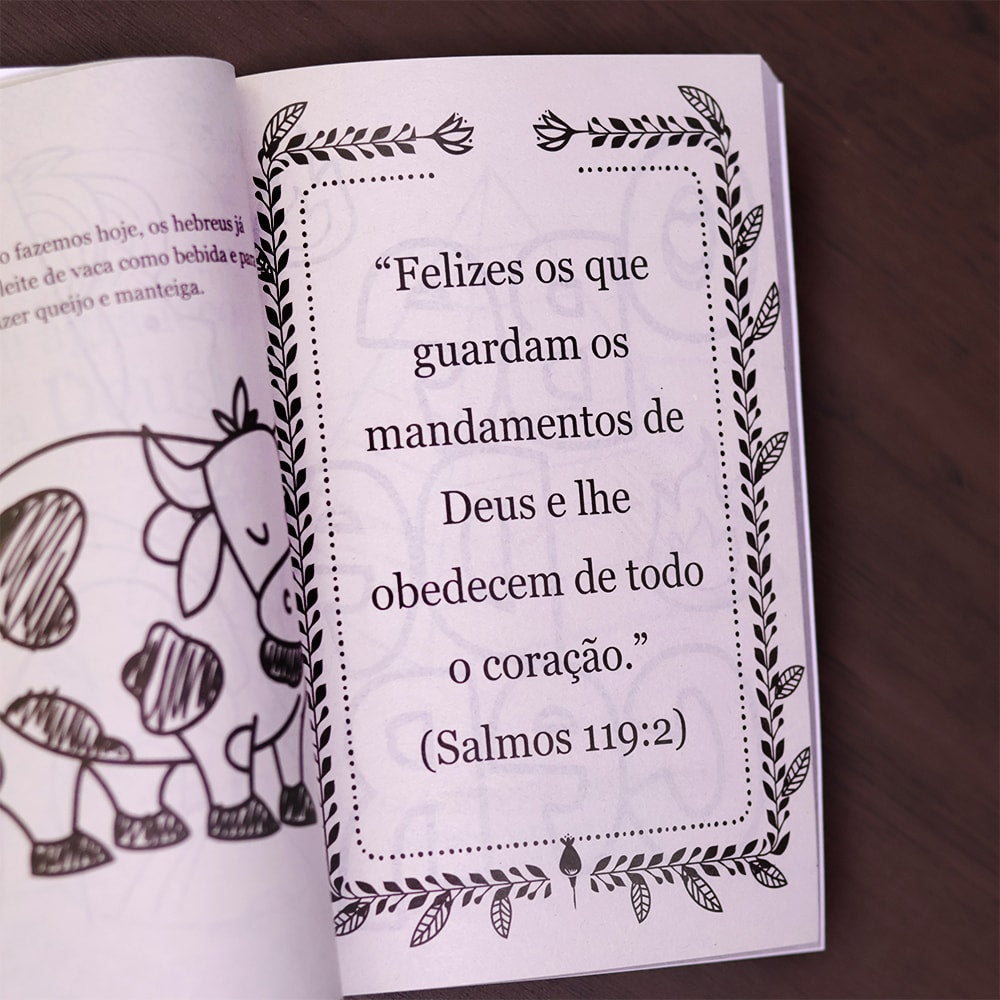 fazemos hoje, os hebreus já
leite de vaca como bebida e
queijo e manteiga.
“Felizes os que
guardam os
mandamentos de
Deus e lhe
obedecem de todo
o coração.”
(Salmos 119:2)